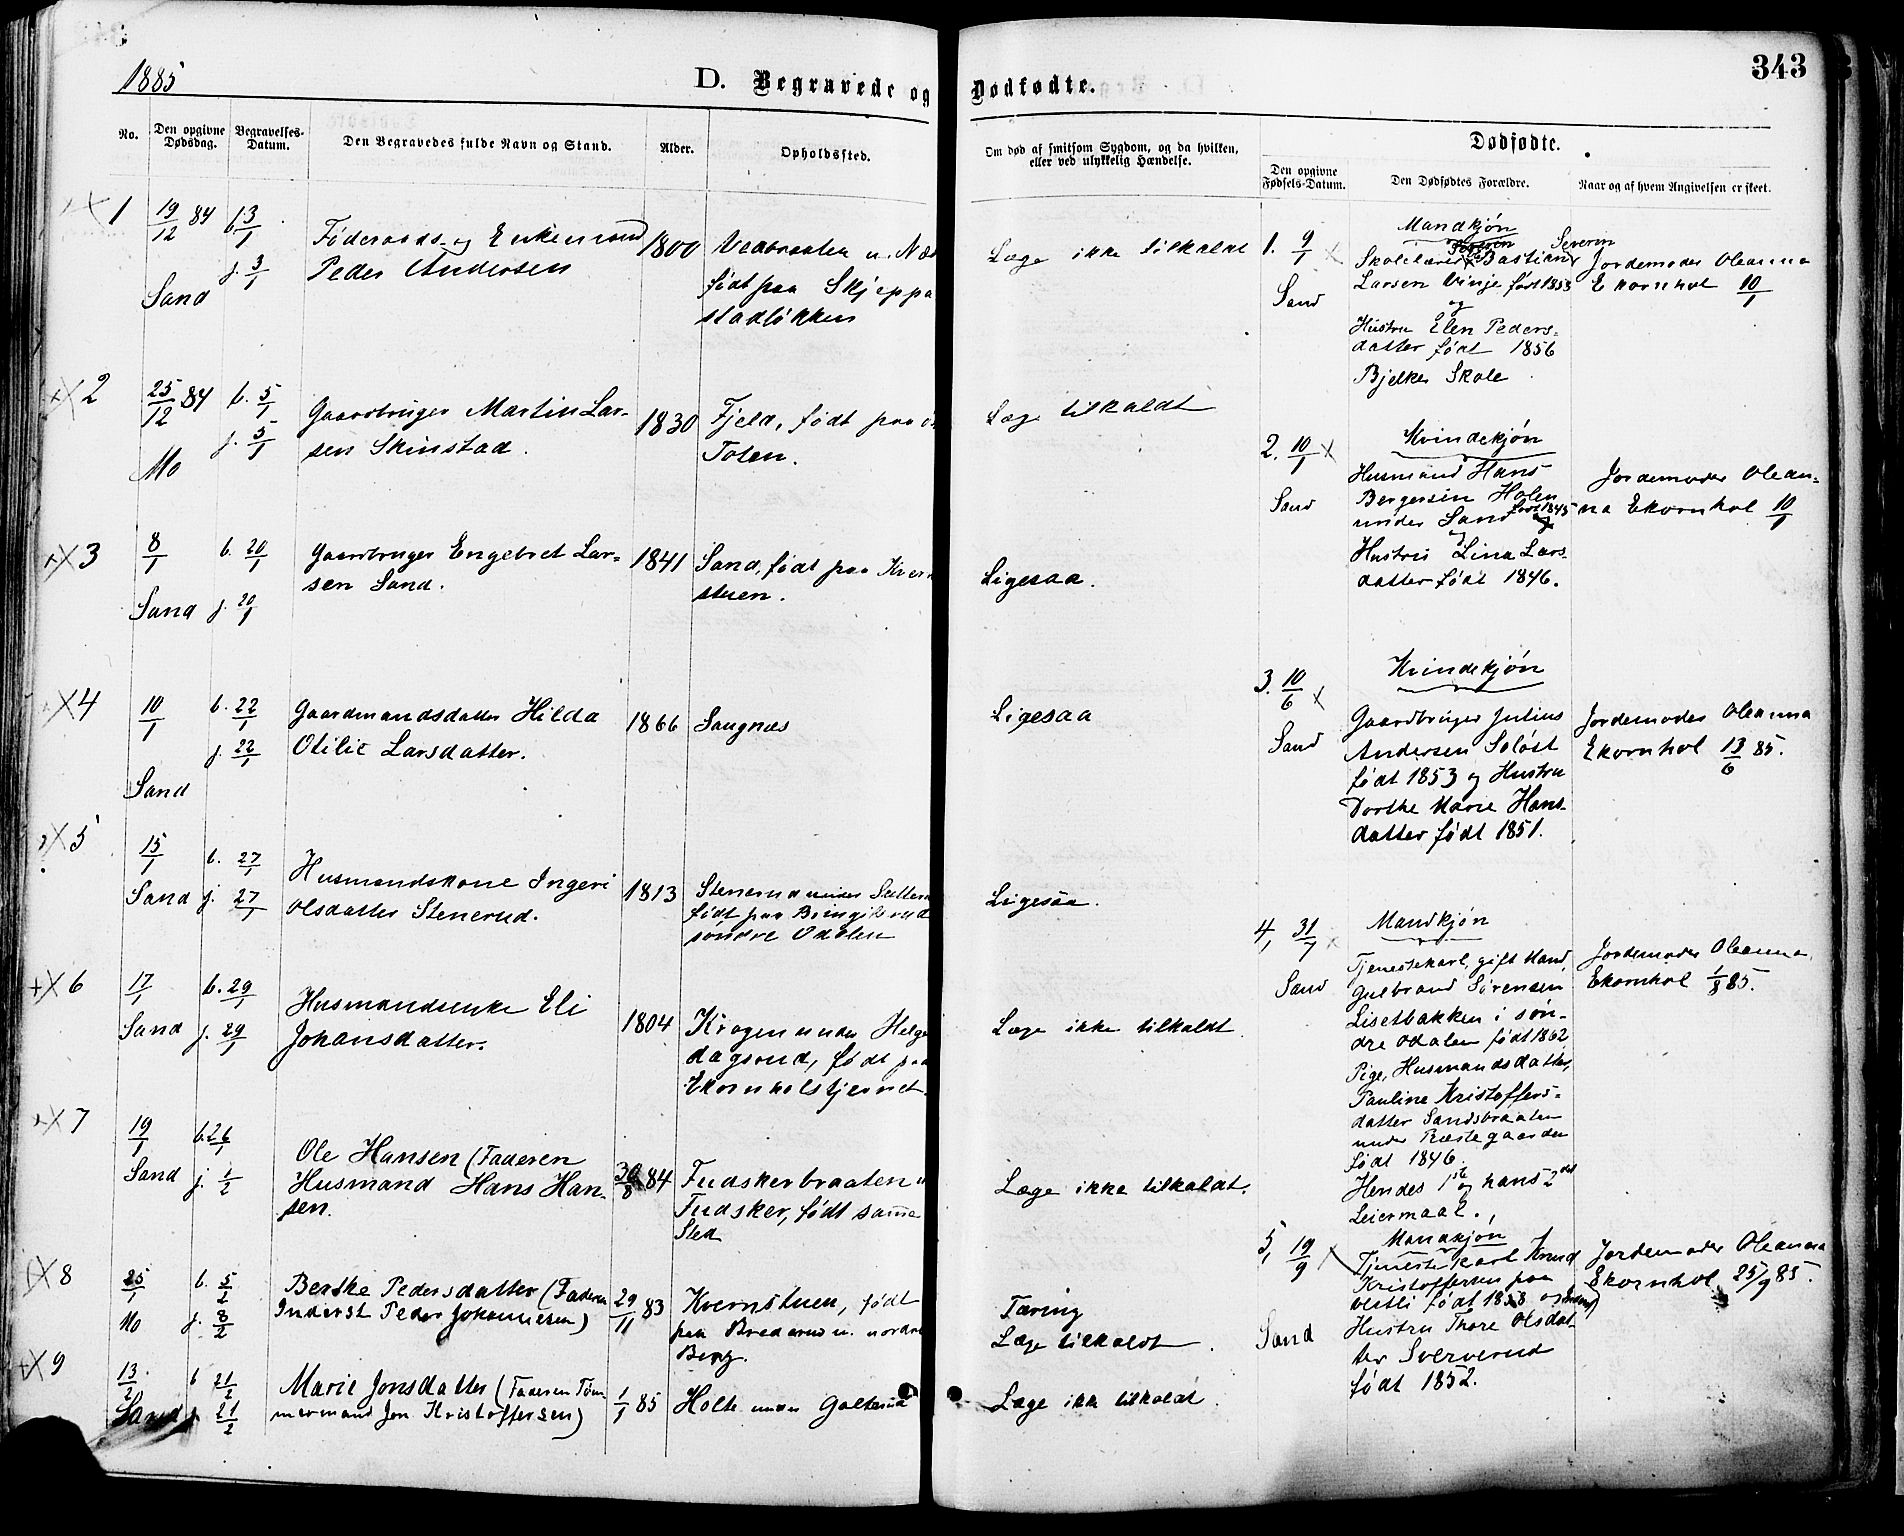 343
1885
D. Begravede og Dødfødte.
No.
Den opgivne Dødsdag.
Begravelses-Datum.
Den Begravedes fulde Navn og Stand.
Alder.
Opholdssted.
Om død af smitsom Sygdom, og da hvilken, eller ved ulykkelig Hændelse.
Dødfødte.
Den opgivne Fødsels-Datum.
Den Dødfødtes Forældre.
Naar og af hvem Angivelsen er skeet.
1
19/12 84
b. 3/1
j. 3/1
Sand
Føderaads- og Enkemand
Peder Andersen
1800
født paa Skjeppe
stadløkken
Læge ikke tilkaldt
2
25/12 84
b. 5/1
j. 5/1
Mo
Gaardbruger Martin Lar-
sen Skinstad.
1830
Fjeld, født paa
Toten.
Læge tilkaldt
3
8/1
b. 20/1
Sand j. 20/1
Gaardbruger Engebret Lar=
sen Sand.
1841
Sand, født paa Kvern
stuen.
Ligesaa.
4
10/1
b. 22/1
j. 22/1
Sand
Gaardmandsdatter Hilda
Otilie Larsdatter.
1866
Saugnæs
Ligesaa
5
15/1
b. 27/1
Sand j. 27/1
Husmandskone Ingeri
Olsdatter Stenerud.
1813
Stenerud under
født paa
søndre Odalen
Ligesaa.
6
17/1
b. 29/1
Sand j. 29/1
Husmandsenke Eli
Johansdatter.
1804
Krogen under Helge
dagsrud, født paa
Ekornholstjernet.
Læge ikke tilkaldt
7
19/1
b. 26/1
Sand j. 1/2
Ole Hansen (Faderen
Husmand Hans Han-
sen.
30/8 84
Fudskerbraaten u
Fudsker, født samme
Sted
Læge ikke tilkaldt.
8
25/1
b. 5/1
Mo j. 8/2
Berthe Pedersdatter (Faderen
Inderst Peder Johannesen)
29/11 83
Kvernstuen, født
paa Brederud u. nordre
Berg.
Tæring
Læge tilkaldt.
9
13/2
b 21/2
Sand j 21/2
Marie Jonsdatter (Faderen Tøm-
mermand Jon Kristoffersen)
1/1 85
Holte under Galterud
Læge ikke tilkaldt.
1. 9/1
Sand
Mandkjøn
Severin
Skolelærer Bastian
Larsen Vinje født 1853
og
Hustru Elen Peders=
datter født 1856
Bjelke Skole
Jordemoder Oleanna
Ekornhol 10/1
2. 10/1
Sand
Kvindekjøn
Husmand Hans
Bergersen Holen
under Sand født 1845
og
Hustru Lina Lars
datter født 1846.
Jordemoder Olean=
na Ekornhol 10/1
3. 10/6
Sand
Kvindekjøn
Gaardbruger Julius
Andersen Soløst
født 1853 og Hustru
Dorthe Marie Hans-
datter født 1851.
Jordemoder Oleanna
Ekornhol 13/6 85.
4, 31/7
Sand
Mandkjøn
Tjenestekarl, gift Mand,
Gulbrand Sørensen
Lisetbakken i søn-
dre Odalen født 1862
Pige, Husmandsdatter,
Pauline Kristoffers=
datter Sandsbraaten
under Præstegaarden
født 1846.
Hendes 1ste og hans 2det
Leiermaal.
Jordemoder Oleanna
Ekornhol 1/8 85.
5, 19/9
Sand
Mandkjøn
Tjenestekarl Knud
Kristoffersen paa
Vestli født 1858 og
Hustru Thore Olsdat-
ter Sververud
født 1852.
Jordemoder Oleanna
Ekornhol 25/9 85.